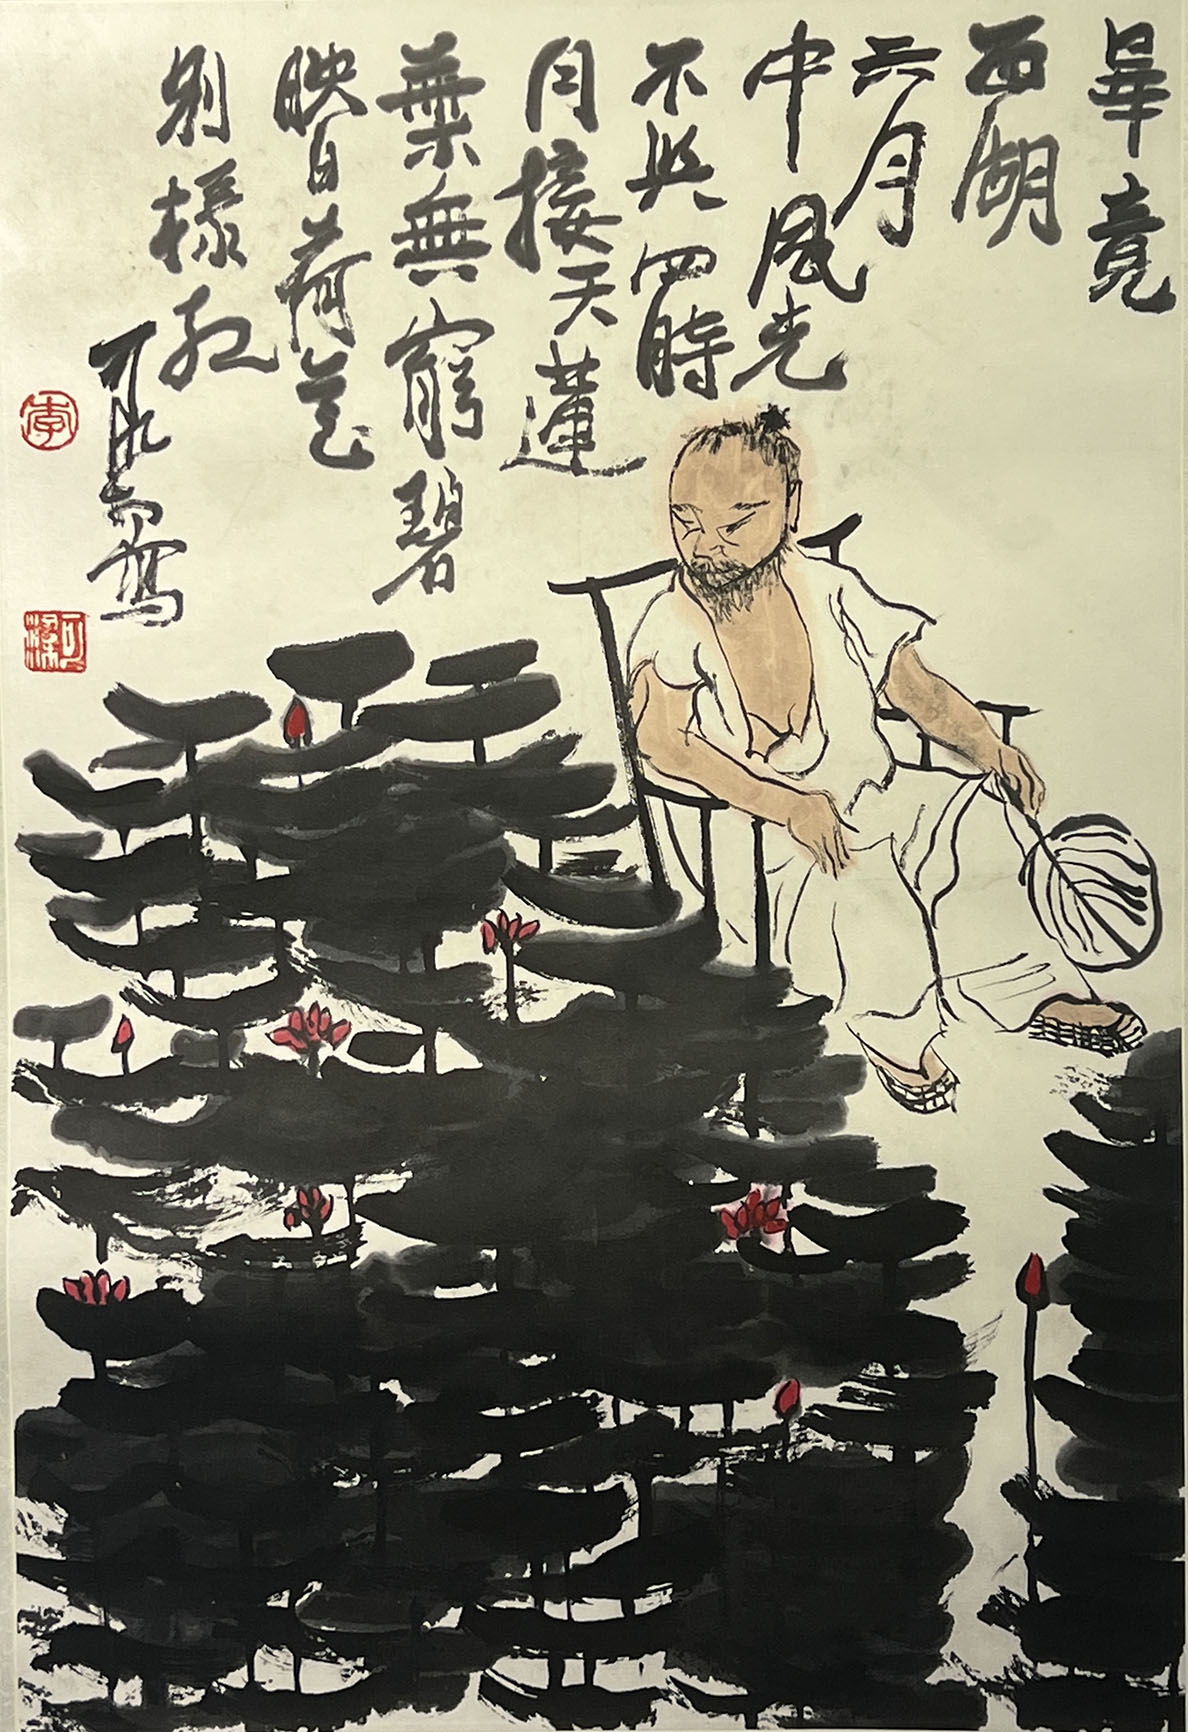 畢竟
西湖
六月
中風光
不與四時
同接天蓮
葉無窮碧
映日荷花
別樣紅
可染寫
李
可染